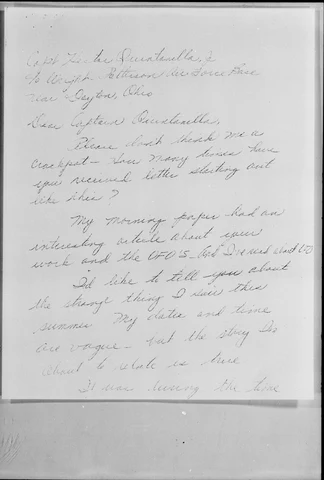 Capt. Hector Quintanilla, Jr
c/o Wright Patterson Air Force Base
Near Dayton, Ohio
Dear Captain Quintanilla,
Please don't think me a
crackpot - How many times have
you received letters starting out
like this?
My morning paper had an
interesting article about your
work and the UFO'S. and I've read about
I'd like to tell you about
the strange thing I saw this
summer My dates and time
are vague - but the story Im
about to relate is true
It was during the time